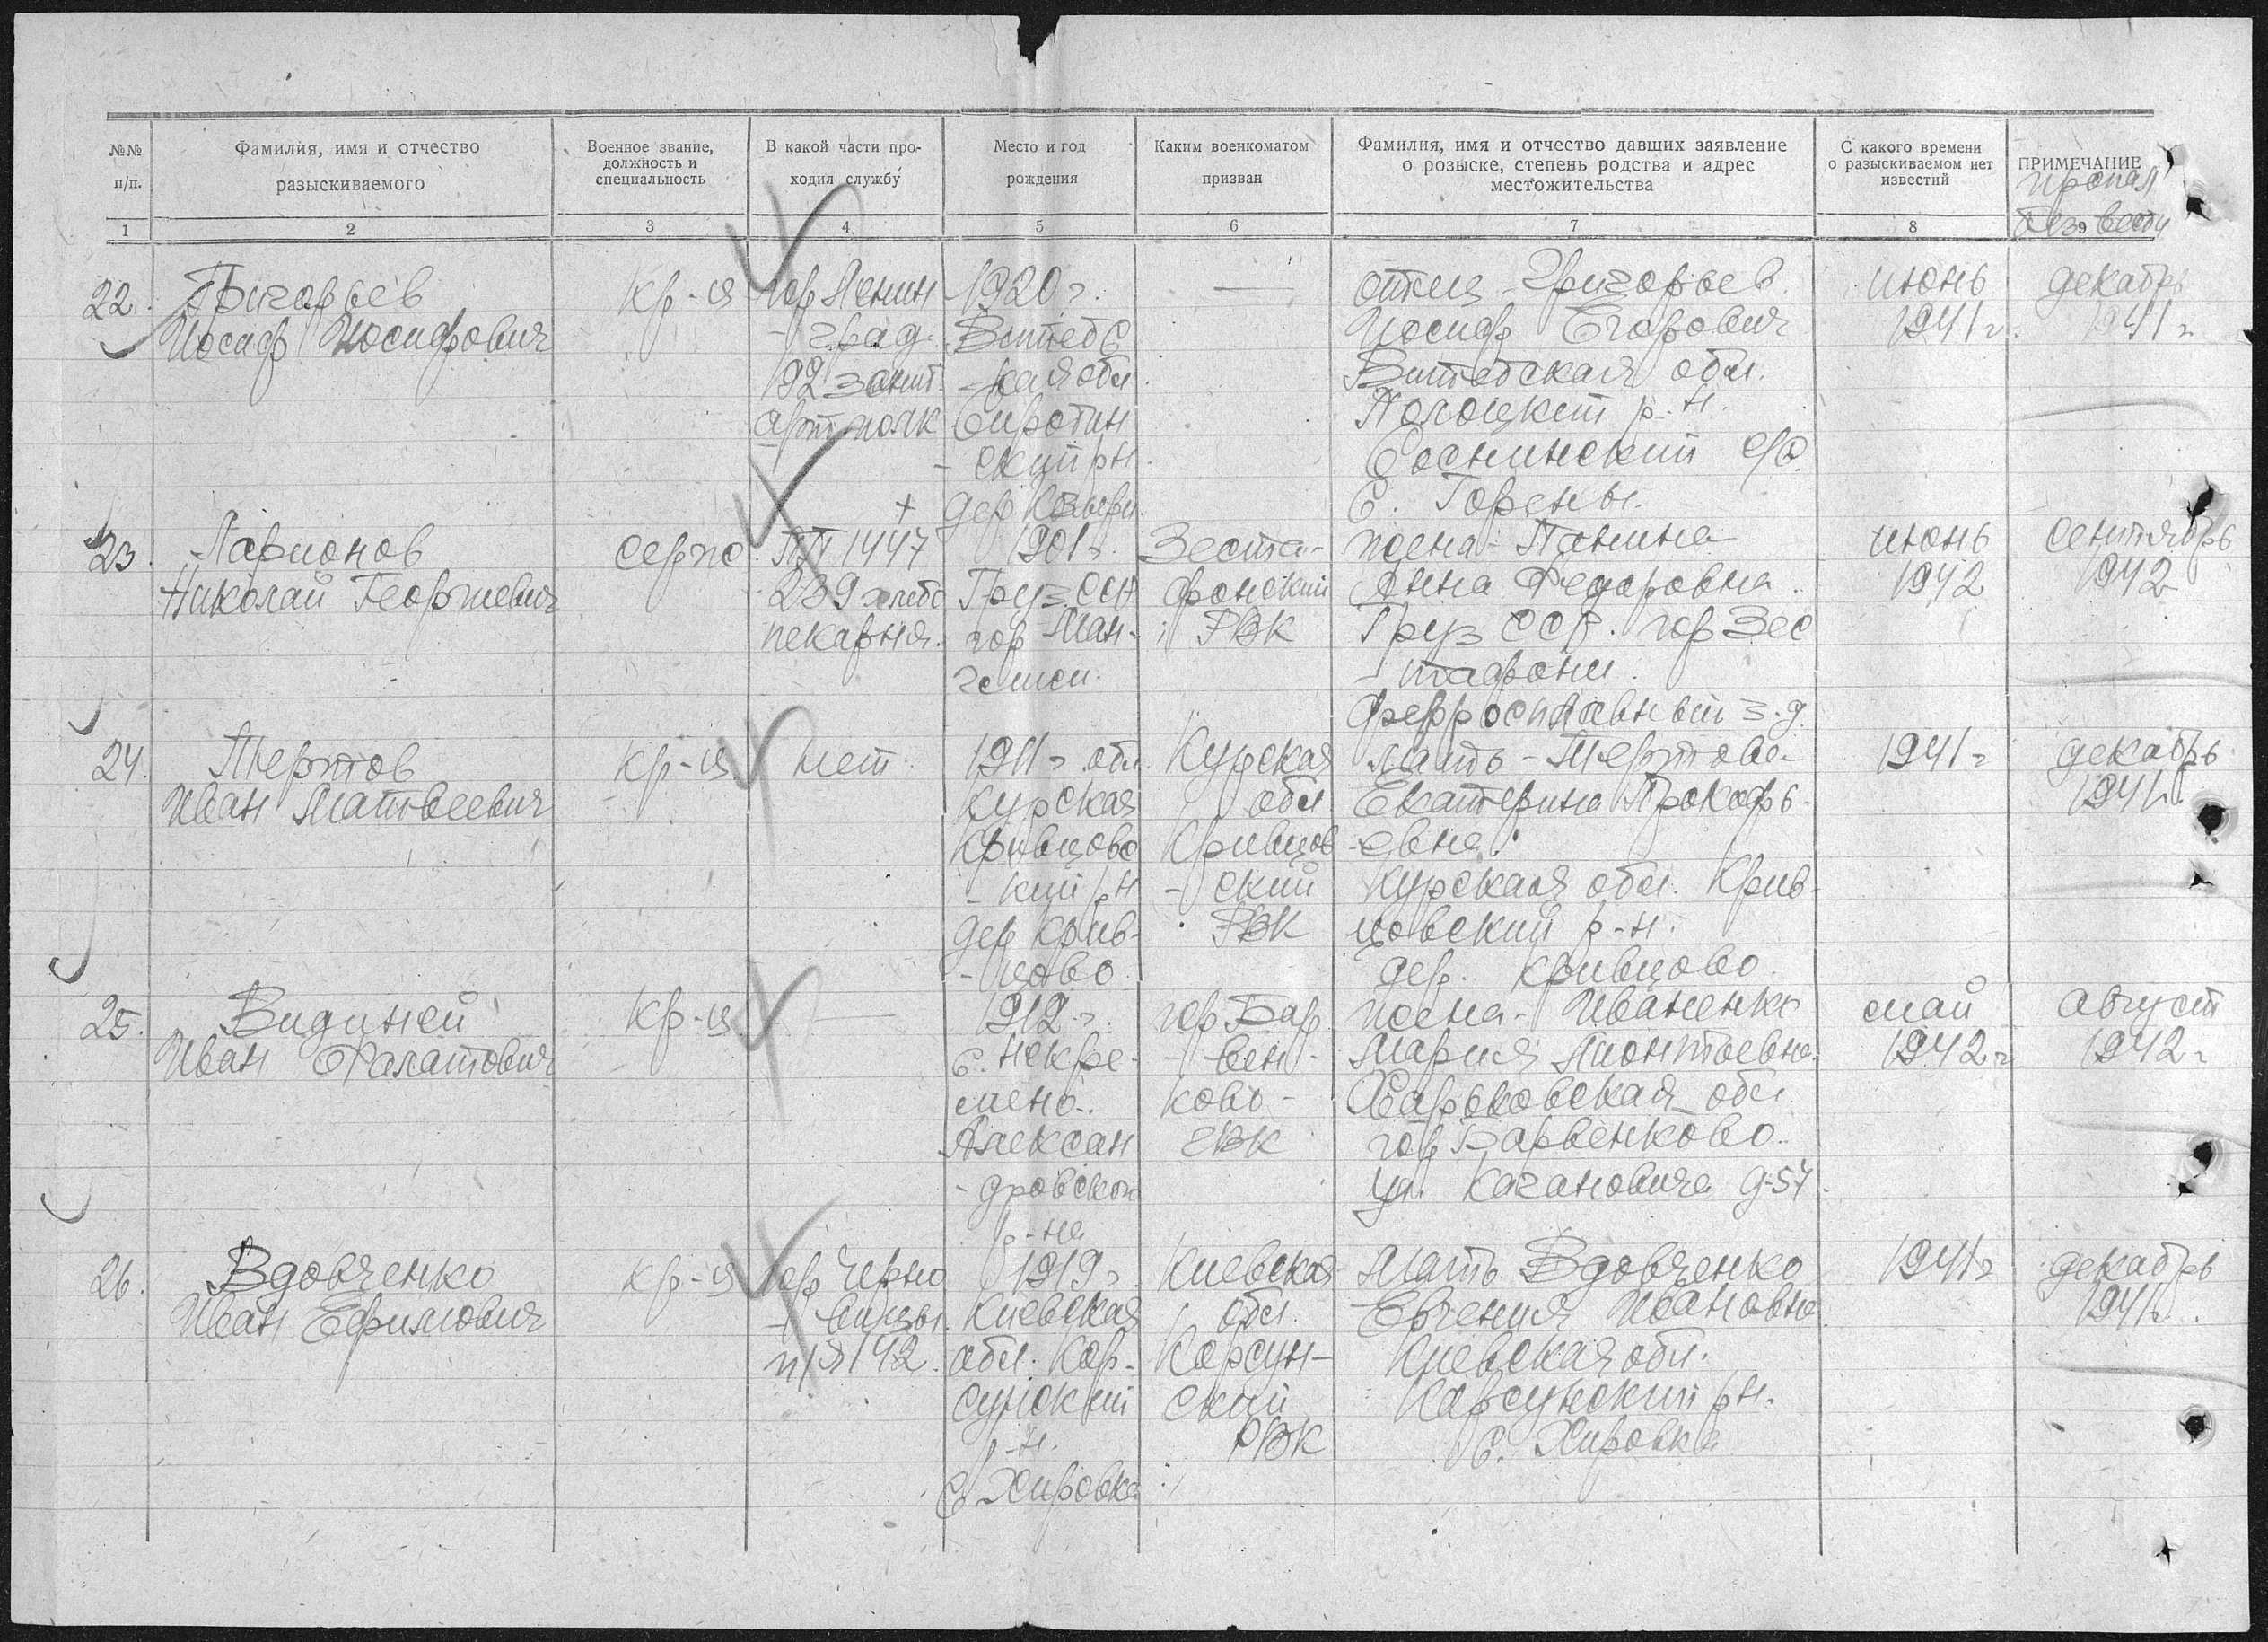 №№ п/п.
Фамилия, имя и отчество разыскиваемого
Военное звание, должность и специальность
В какой части проходил службу
Место и год рождения
Каким военкоматом призван
Фамилия, имя и отчество давших заявление о розыске, степень родства и адрес местожительства
С какого времени о разыскиваемом нет известий
ПРИМЕЧАНИЕ
пропал
без вести
1 2 3 4 5 6 7 8 9
22.
Григорьев
Иосиф Иосифович
кр-ц
гор Ленин
- град.
192 зенит.
арт полк
1920 г.
Витебс
- кая обл.
Сиротин
- ский р-н.
дер
—
отец - Григорьев
Иосиф Егорович
Витебская обл.
Полоцкий р-н.
Соснинский с/с.
с. Горены.
июнь
1941 г.
декабрь
1941 г.
23.
Ларионов
Николай Георгиевич
серж.
ПП 1447
239 хлебо
пекарня.
1901 г.
Груз ССР
гор
Зеста-
фонский
РВК
жена - Панина
Анна Федоровна.
Груз ССР. гор Зес
- тафони.
Ферросплавный з-д.
июнь
1942
сентябрь
1942
24.
Мертов
Иван Матвеевич
кр-ц
нет
1911 г. обл.
Курская
Кривцовс
- кий р-н
дер Крив-
- цово.
Курская
обл
Кривцов
- ский
РВК
мать - Мертова
Екатерина Прокофь-
- евна.
Курская обл. Крив-
цовский р-н.
дер. Кривцово.
1941 г
декабрь
1941 г.
25.
Видиней
Иван Фалатович
кр-ц
—
1912 г.
с.
Алексан
- дровского
р-на
гор Бар
- вен-
ково-
ГВК
жена - Иваненко
Мария Леонтьевна.
Харьковская обл.
гор Барвенково.
ул. Кагановича д-57.
май
1942 г
август
1942 г
26.
Вдовченко
Иван Ефимович
кр-ц
гор Черно
- вицы.
п/я 142.
1919 г.
Киевская
обл. Кор-
сунский
р-н.
с Хировка
Киевская
обл.
Корсун-
ский
РВК
Мать Вдовченко
Евгения Ивановна
Киевская обл.
Карсунский р-н.
с. Хировка
1941 г
декабрь
1941 г.